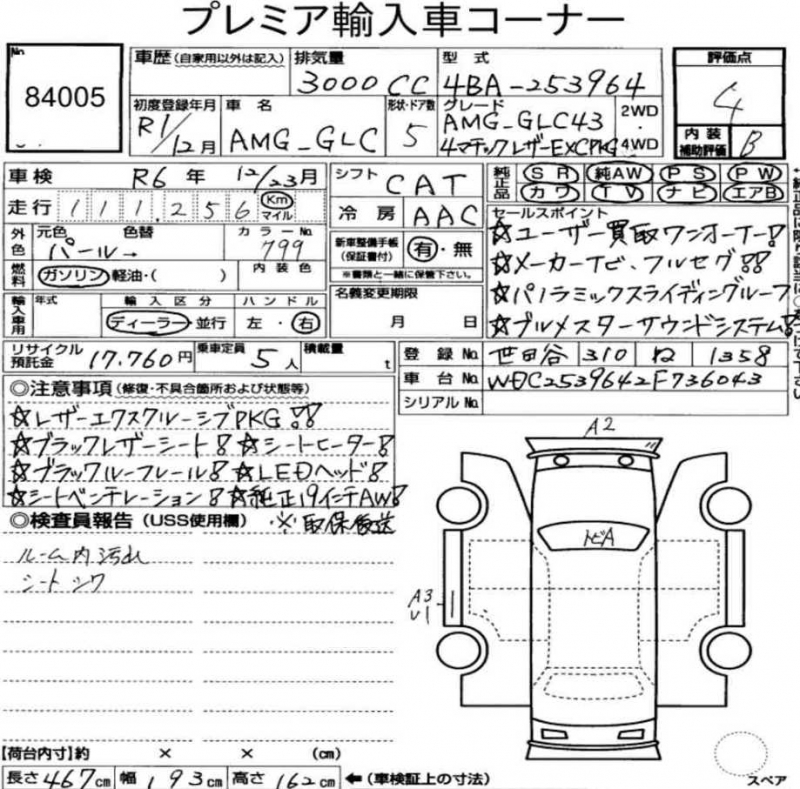 プレミア輸入車コーナー
No.
84005
車歴 (自家用以外は記入) 排気量 3000 CC 型式 4BA-253964 評価点 4
初度登録年月 R1/12月 車名 AMG-GLC 形状・ドア数 5 グレード AMG-GLC43 4マチックレザーEXCPKG 2WD・4WD
内装補助評価 B
車検 R6年 12/23月 シフト CAT
純正品 SR 純AW PS PW
カワ TV ナビ エアB
走行 111,256 Km マイル 冷房 AAC
外色 元色 色替 カラーNo. パール→ 799
新車整備手帳(保証書付) 有・無
※書類と一緒に保管下さい。
セールスポイント
☆ユーザー買取ワンオーナー!
☆メーカーナビ、フルセグ!!
☆パノラミックスライディングルーフ
☆ブルメスターサウンドシステム!
燃料 ガソリン 軽油・( ) 内装色
輸入車用 年式 輸入区分 ディーラー 並行 ハンドル 左・右
名義変更期限 月 日
リサイクル預託金 17,760円 乗車定員 5人 積載量 t
登録No. 世田谷 310 ね 1358
車台No. WDC2539642F736043
シリアルNo.
◎注意事項(修復・不具合箇所および状態等)
☆レザーエクスクルーシブPKG!!
☆ブラックレザーシート! ☆シートヒーター!
☆ブラックルーフレール! ☆LEDヘッド!
☆シートベンチレーション! ☆純正19インチAW!
◎検査員報告(USS使用欄) ※取保後送
ルーム内汚れ
シートシワ
A2
トビA
A3
U1
【荷台内寸】約 × × (cm)
長さ 467cm 幅 193cm 高さ 162cm ←(車検証上の寸法)
スペア